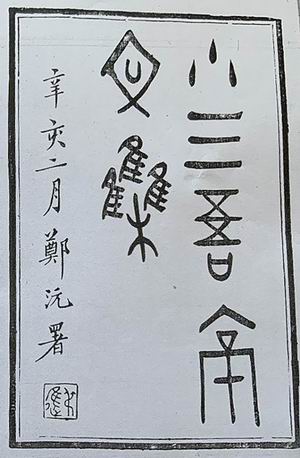 小三吾亭
文集
辛亥二月鄭沅署